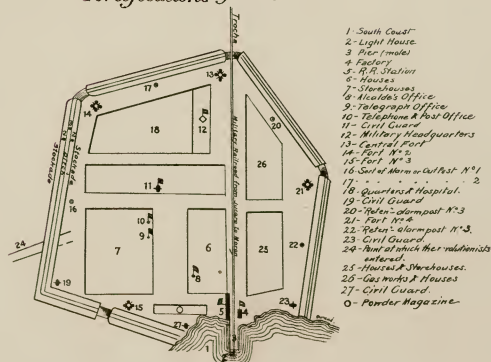 Trocha
Military Railroad from Jucaro to Moron
Stockade
Stockade
1 - South Coast
2 - Light House
3 Pier (mole)
4 Factory
5 - R.R. Station
6 - Houses
7 - Storehouses
8 - Alcalde's Office
9 - Telegraph Office
10 - Telephone & Post Office
11 - Civil Guard
12 - Military Headquarters
13 - Central Fort
14 - Fort Nº 2
15 - Fort Nº 3
16 - Sort of Alarm or Out Post Nº 1
17 - " " " " " 2
18 - Quarters & Hospital.
19 - Civil Guard
20 - "Reten" - alarm post Nº 3
21 - Fort Nº 4
22 - "Reten" - alarm post Nº 3.
23 - Civil Guard.
24 - Point at which the revolutionists
entered.
25 - Houses & Storehouses.
26 - Gas works & Houses
27 - Civil Guard.
O - Powder Magazine
17
13
14
18
12
20
26
11
21
16
10
9
7
6
8
25
22
24
19
15
5
4
23
27
1
3
2